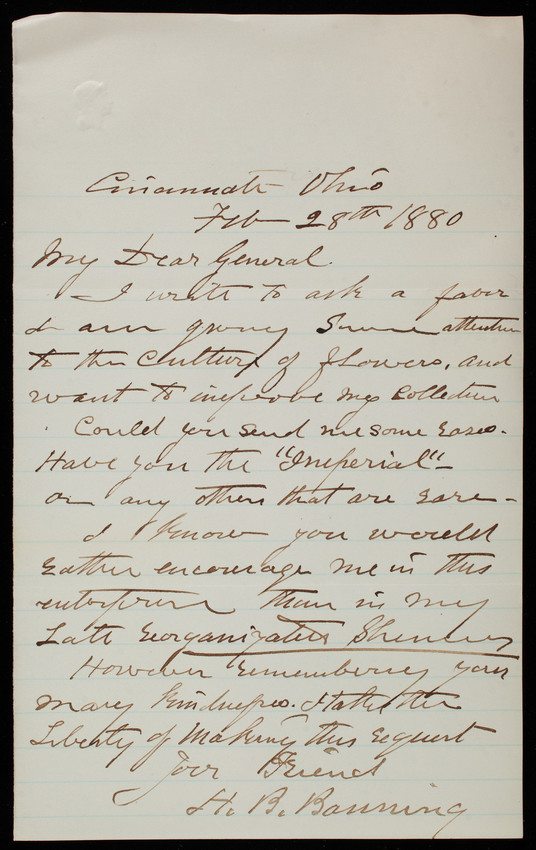 Cincinnati Ohio
Feb 28th 1880
My Dear General.
I write to ask a favor
I am giving Some attention
to the Culture of flowers, and
want to improve my Collection
Could you send me some
Have you the "Imperial"
or any others that are rare -
I know you would
rather encourage me in this
enterprise than in my
Late reorganization Schemes
However remembering your
many kindness. I take the
Liberty of making this request
Your Friend
H. B. Banning